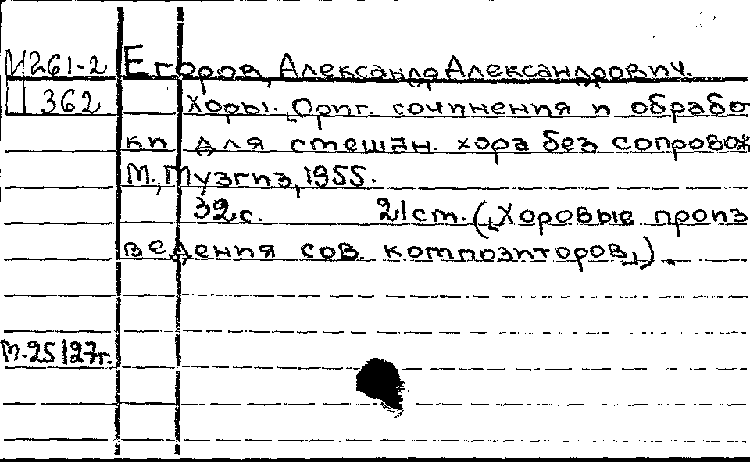 М261-2 Егоров, Александр Александрович.
362 Хоры. [Ориг. сочинения и обрабо
ки для смешан. хора без сопровож
М., Музгиз, 1955.
32с. 21см. („Хоровые произ
ведения сов. композиторов„).
М.25127г.